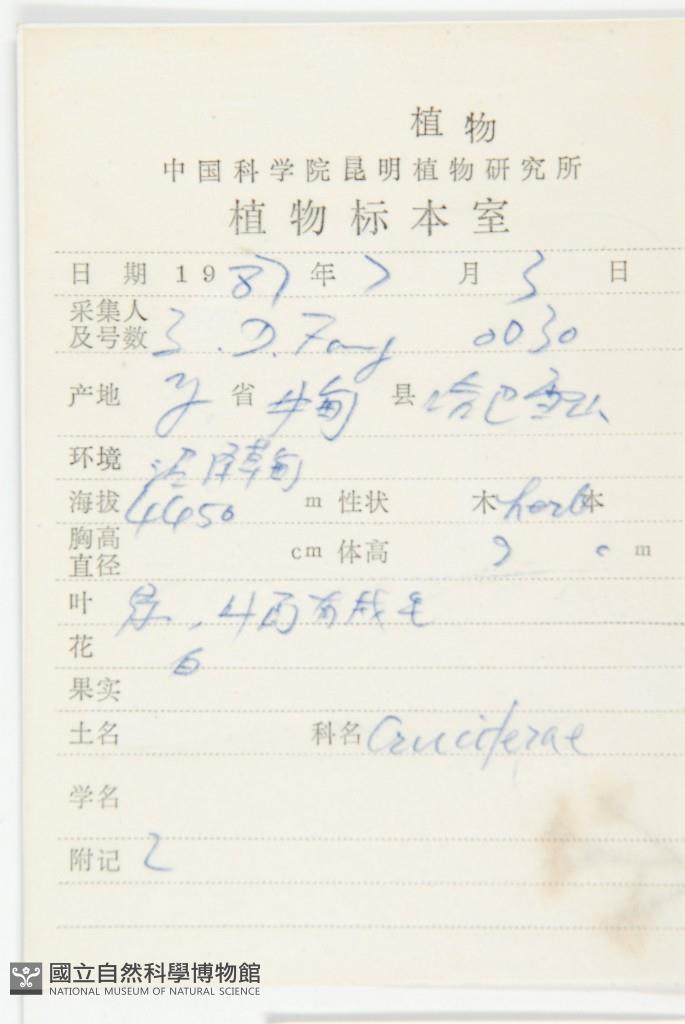 植物
中国科学院昆明植物研究所
植物标本室
日 期 1987年 7 月 3 日
采集人
及号数 Z.D.Fang 0030
产地 省 中甸 县 哈巴雪山
环境 沼泽草甸
海拔 4450 m 性状 木 herb 本
胸高
直径 cm 体高 m
叶
花 白
果实
土名 科名 Cruciferae
学名
附记 2
國立自然科學博物館
NATIONAL MUSEUM OF NATURAL SCIENCE